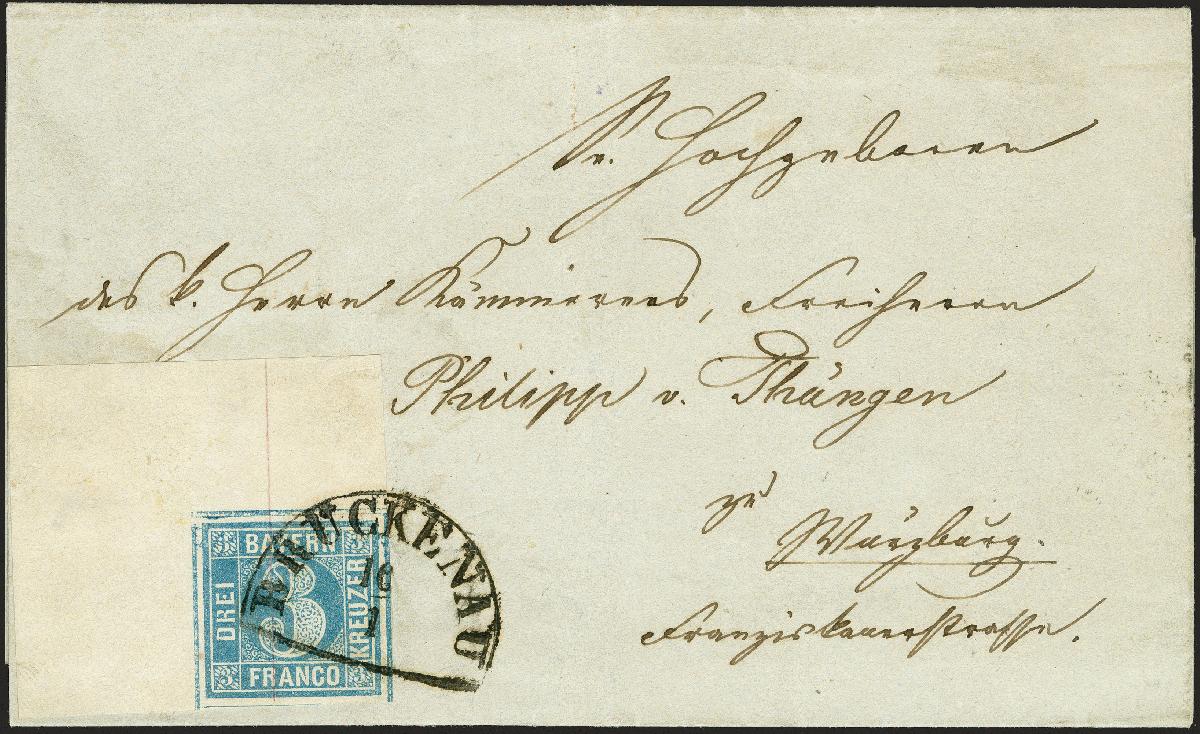 Sr. Hochgeboren
des k. Herrn Kämmerers, Freiherrn
Philipp v. Thüngen
zu
Würzburg.
Franziskanerstrasse.
BRUCKENAU
16
1
BAYERN
DREI
3
KREUZER
FRANCO